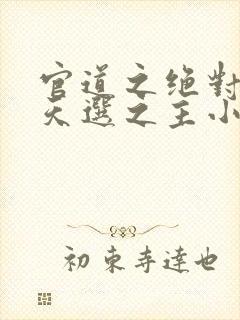 官道之绝對
天選之主小
初東寺達也